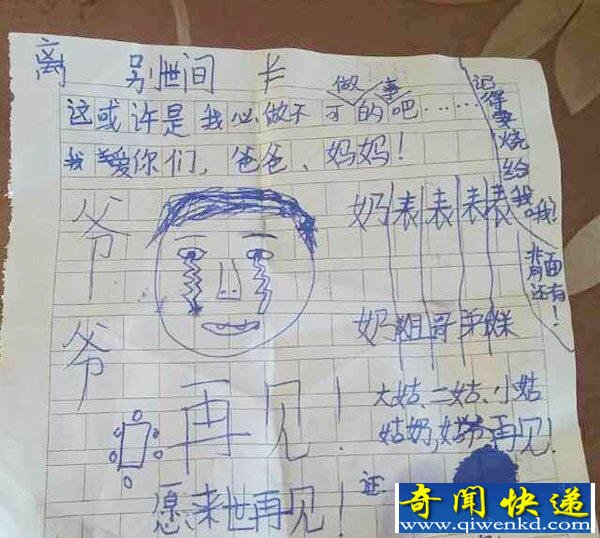 离别世间卡
做事
这或许是我必做不可的吧……
我爱你们，爸爸、妈妈！
记得要烧给我哦！
背面还有！
爷爷
奶 表 表 表 表
奶 姐 哥 弟 妹
大姑、二姑、小姑
姑奶,姑爷再见！
再见！
愿,来世再见！
证
奇闻快递
www.qiwenkd.com